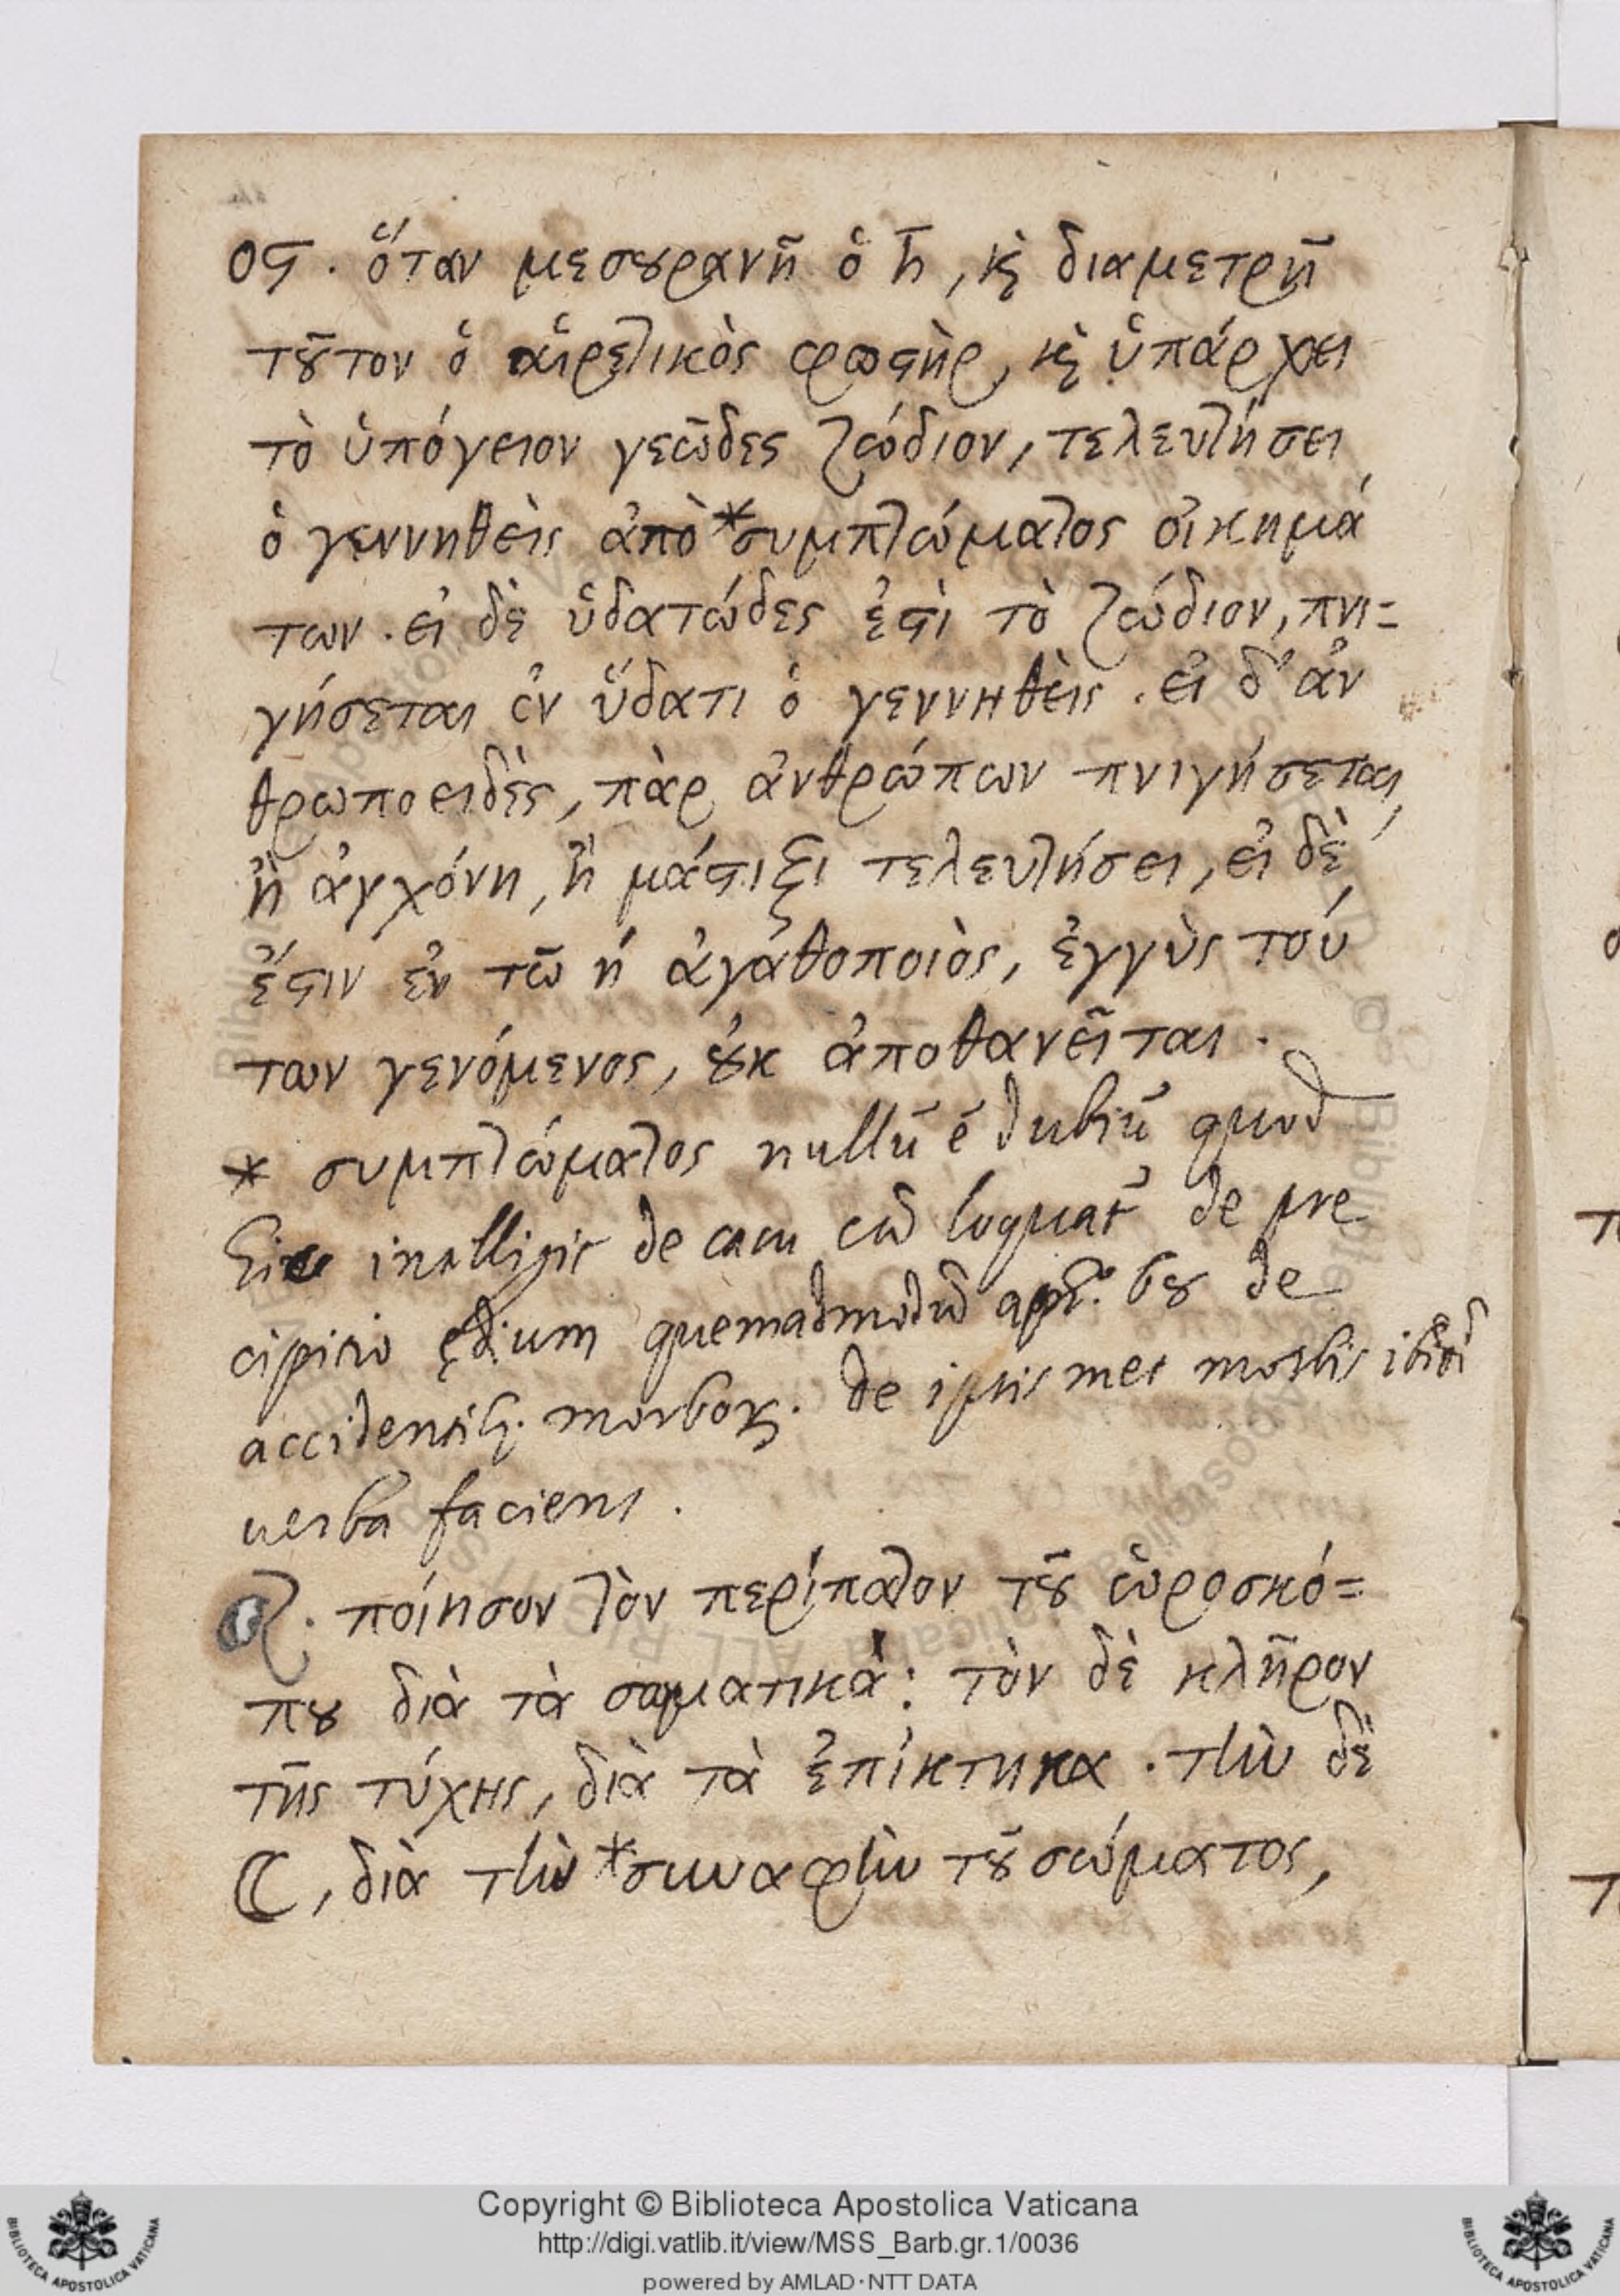 ος. ὅταν μεσȣρανῆ ὁ ♄, κ̀ διαμετρῆ
τȣ͂τον ὁ αἱρετικὸς φωςὴρ, κ̀ ὑπάρχει
τὸ ὑπόγειον γεῶδες ζώδιον, τελευτήσει
ὁ γεννηθεὶς ἀπὸ *συμπτώματος οἰκημά
των. εἰ δὲ ὑδατώδες ἐςὶ τὸ ζώδιον, πνι=
γήσεται ἐν ὕδατι ὁ γεννηθεὶς. εἰ δ' ἀν
θρωποειδὲς, πὰρ ἀνθρώπων πνιγήσεται,
ἢ ἀγχόνη, ἢ μάςιξι τελευτήσει, εἰ δὲ
ἔςιν ἐν τῶ ή ἀγαθοποιὸς, ἐγγὺς τού
των γενόμενος, ȣ̓κ ἀποθανεῖται.
* συμπτώματος nullū ē dubiū quod
de casu cū loquat᷑ de pre
cipitio ędium quemadmodū de
morboꝝ. de ipsis met morbis
uerba faciens.
οζ. ποίησον τὸν περίπατον τȣ͂ ὡροσκό=
πȣ διὰ τὰ σωματικὰ: τὸν δὲ κλῆρον
τῆς τύχης, διὰ τὰ ἐπίκτηκα. τὴν δὲ
☾, διὰ τὴν *συναφὴν τȣ͂ σώματος,
Copyright © Biblioteca Apostolica Vaticana
http://digi.vatlib.it/view/MSS_Barb.gr.1/0036
powered by AMLAD·NTT DATA
BIBLIOTECA APOSTOLICA VATICANA
BIBLIOTECA APOSTOLICA VATICANA